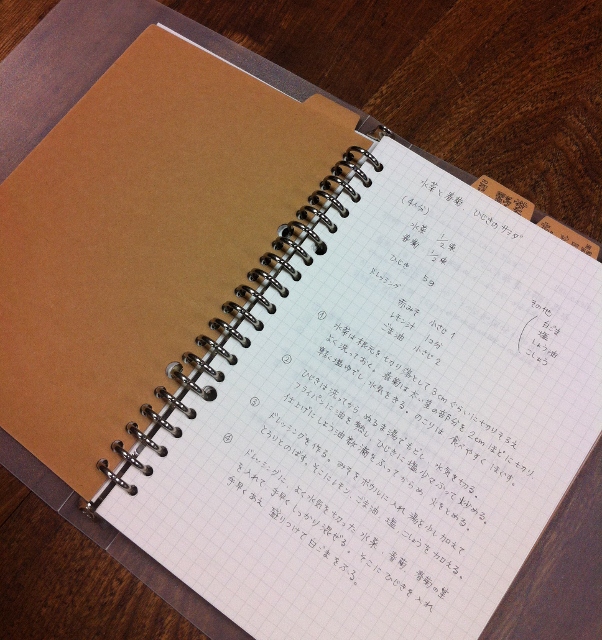 水菜と春菊 ひじきのサラダ
(4人分)
水菜 1/2束
春菊 1/2束
ひじき 5g
ドレッシング
赤みそ 小さじ1
レモン汁 1コ分
ごま油 小さじ2
その他
白ごま
塩
しょう油
こしょう
① 水菜は根元を切り落として3cmぐらいに切りそろえ
よく洗っておく。春菊は太い茎の部分を2cmほどに切り
軽く塩ゆでし水気をきる。のこりは食べやすくほぐす。
② ひじきは洗ってから、ぬるま湯でもどし、水気を切る。
フライパンに油を熱し、ひじきに塩少々ふって炒める。
仕上げにしょう油数滴をふってからめ、火をとめる。
③ ドレッシングを作る。みそをボウルに入れ湯を少し加えて
とろりとのばす。そこにレモン、ごま油、塩、こしょうを加える。
④ ドレッシングに、よく水気を切った水菜、春菊、春菊の茎
を入れて手早くしっかり混ぜる。そこにひじきを入れ
手早くあえ、盛りつけて白ごまをふる。